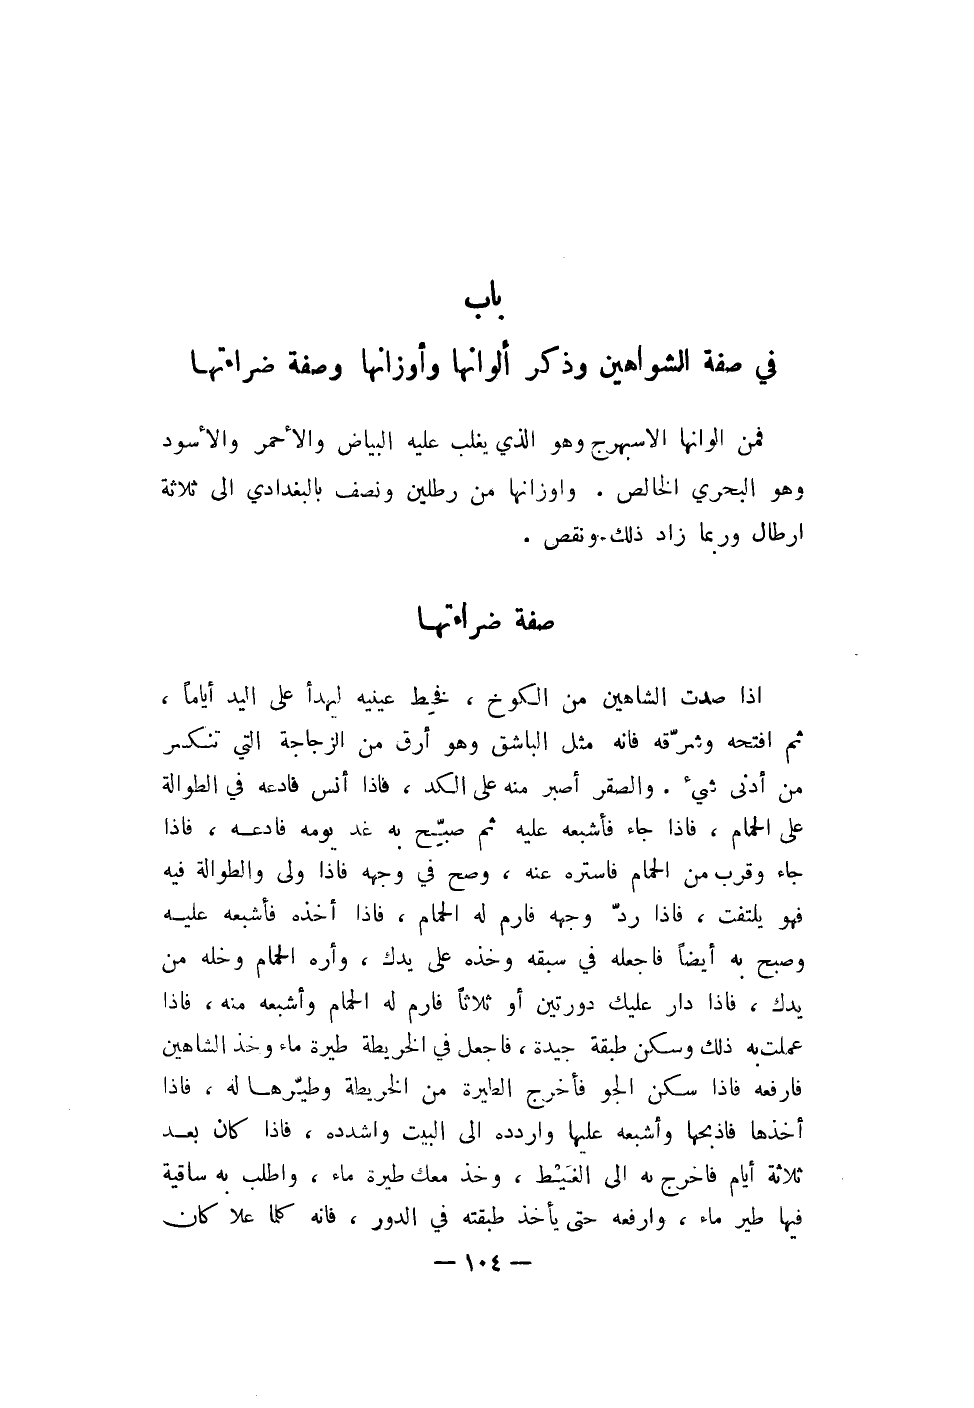 باب
في صفة الشواهين وذكر ألوانها وأوزانها وصفة ضراءتها
فمن الوانها الاسبهرج وهو الذي يغلب عليه البياض والأحمر والأسود
وهو البحري الخالص . واوزانها من رطلين ونصف بالبغدادي الى ثلاثة
ارطال وربما زاد ذلك ونقص .
صفة ضراءتها
اذا صدت الشاهين من الكوخ ، فخيط عينيه ليهدأ على اليد أياماً ،
ثم افتحه وشرّقه فانه مثل الباشق وهو أرق من الزجاجة التي تنكسر
من أدنى شيء . والصقر أصبر منه على الكد ، فاذا أنس فادعه في الطوالة
على الحمام ، فاذا جاء فأشبعه عليه ثم صبّح به غد يومه فادعه ، فاذا
جاء وقرب من الحمام فاستره عنه ، وصح في وجهه فاذا ولى والطوالة فيه
فهو يلتفت ، فاذا ردّ وجهه فارم له الحمام ، فاذا أخذه فأشبعه عليه
وصبح به أيضاً فاجعله في سبقه وخذه على يدك ، وأره الحمام وخله من
يدك ، فاذا دار عليك دورتين أو ثلاثاً فارم له الحمام وأشبعه منه ، فاذا
عملت به ذلك وسكن طبقة جيدة ، فاجعل في الخريطة طيرة ماء وخذ الشاهين
فارفعه فاذا سكن الجو فأخرج الطيرة من الخريطة وطيّرها له ، فاذا
أخذها فاذبحها وأشبعه عليها واردده الى البيت واشدده ، فاذا كان بعد
ثلاثة أيام فاخرج به الى الغَيْط ، وخذ معك طيرة ماء ، واطلب به ساقية
فيها طير ماء ، وارفعه حتى يأخذ طبقته في الدور ، فانه كلما علا كان
— ١٠٤ —